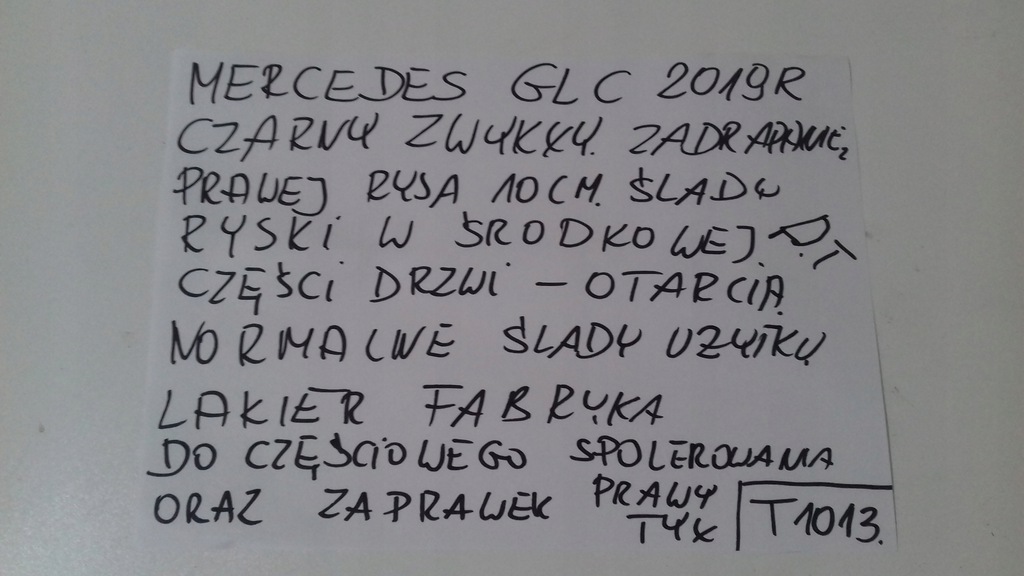 MERCEDES GLC 2019R
CZARNY ZWYKŁY. ZADRAPANIE
PRAWEJ RYSA 10CM. ŚLADY
RYSKI W ŚRODKOWEJ.
CZĘŚCI DRZWI – OTARCIA
NORMALNE ŚLADY UZYTKU
LAKIER FABRYKA
DO CZĘŚCIOWEGO SPOLEROWANIA
ORAZ ZAPRAWEK PRAWY
TYŁ T1013.